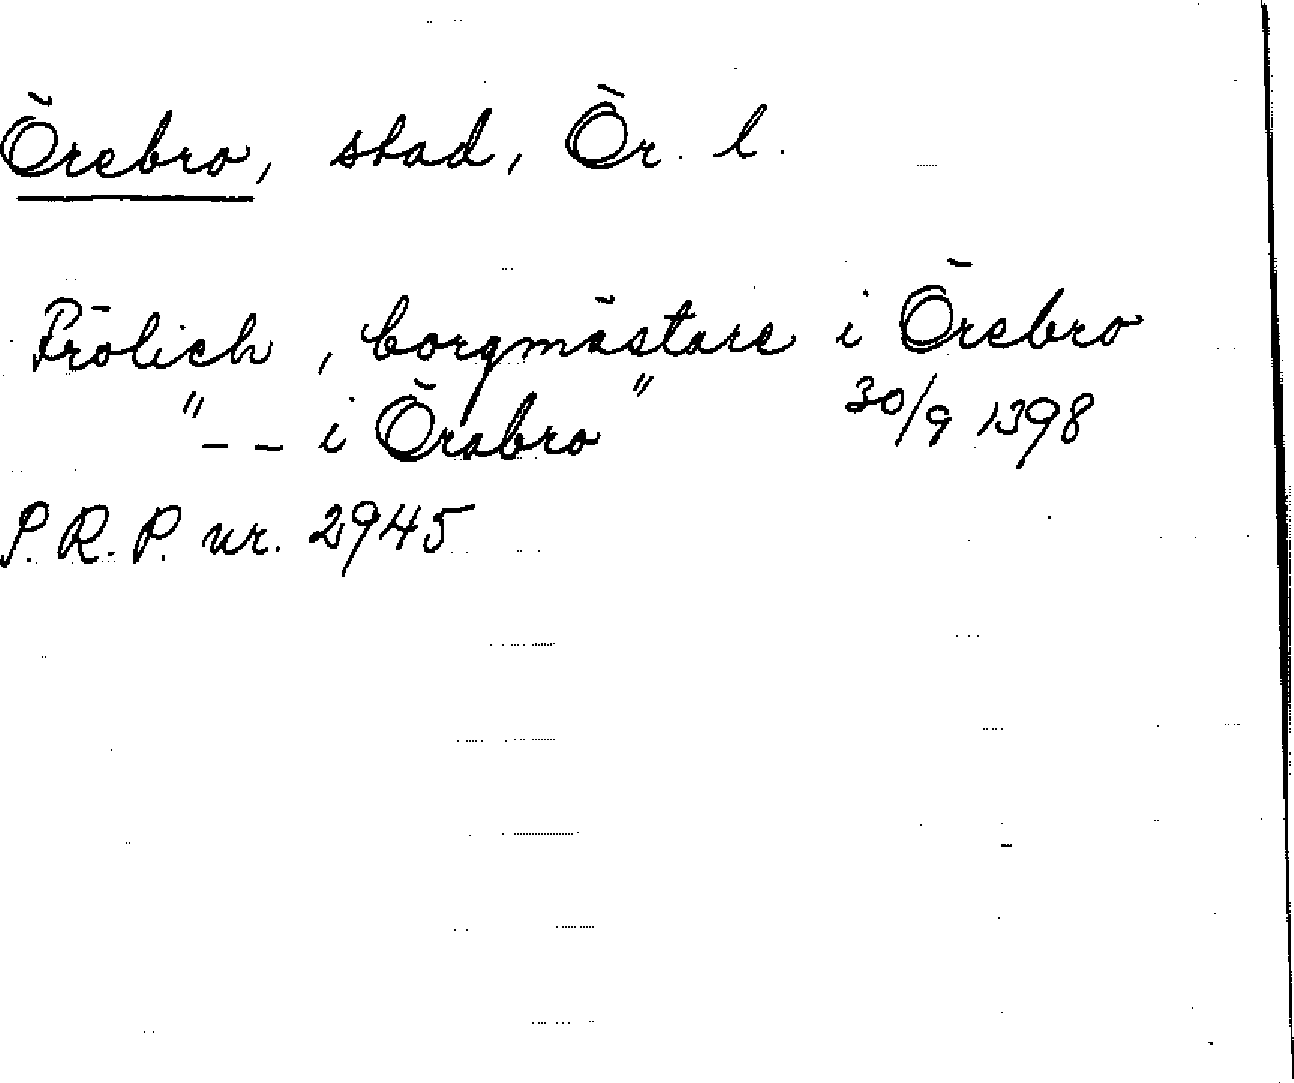 Örebro, stad, Ör. l.
Frölich, borgmästare i Örebro
"-- i Örabro" 30/9 1398
S.R.P. nr. 2945